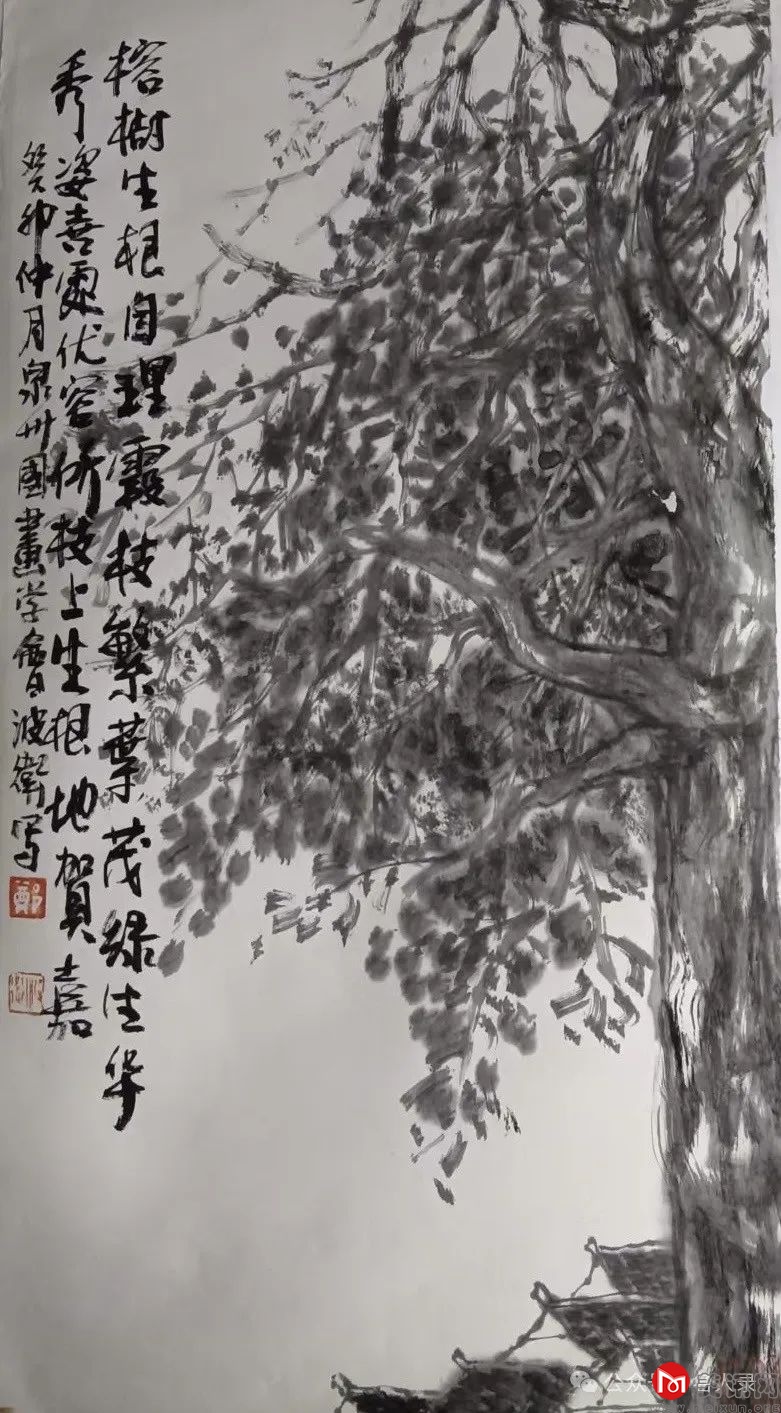 榕树生根自理霞枝繁葉茂綠生华
秀姿喜处优容侨枝上生根地賀嘉
癸卯仲月泉州國畫学會波衛写
鄭
公众 名人录